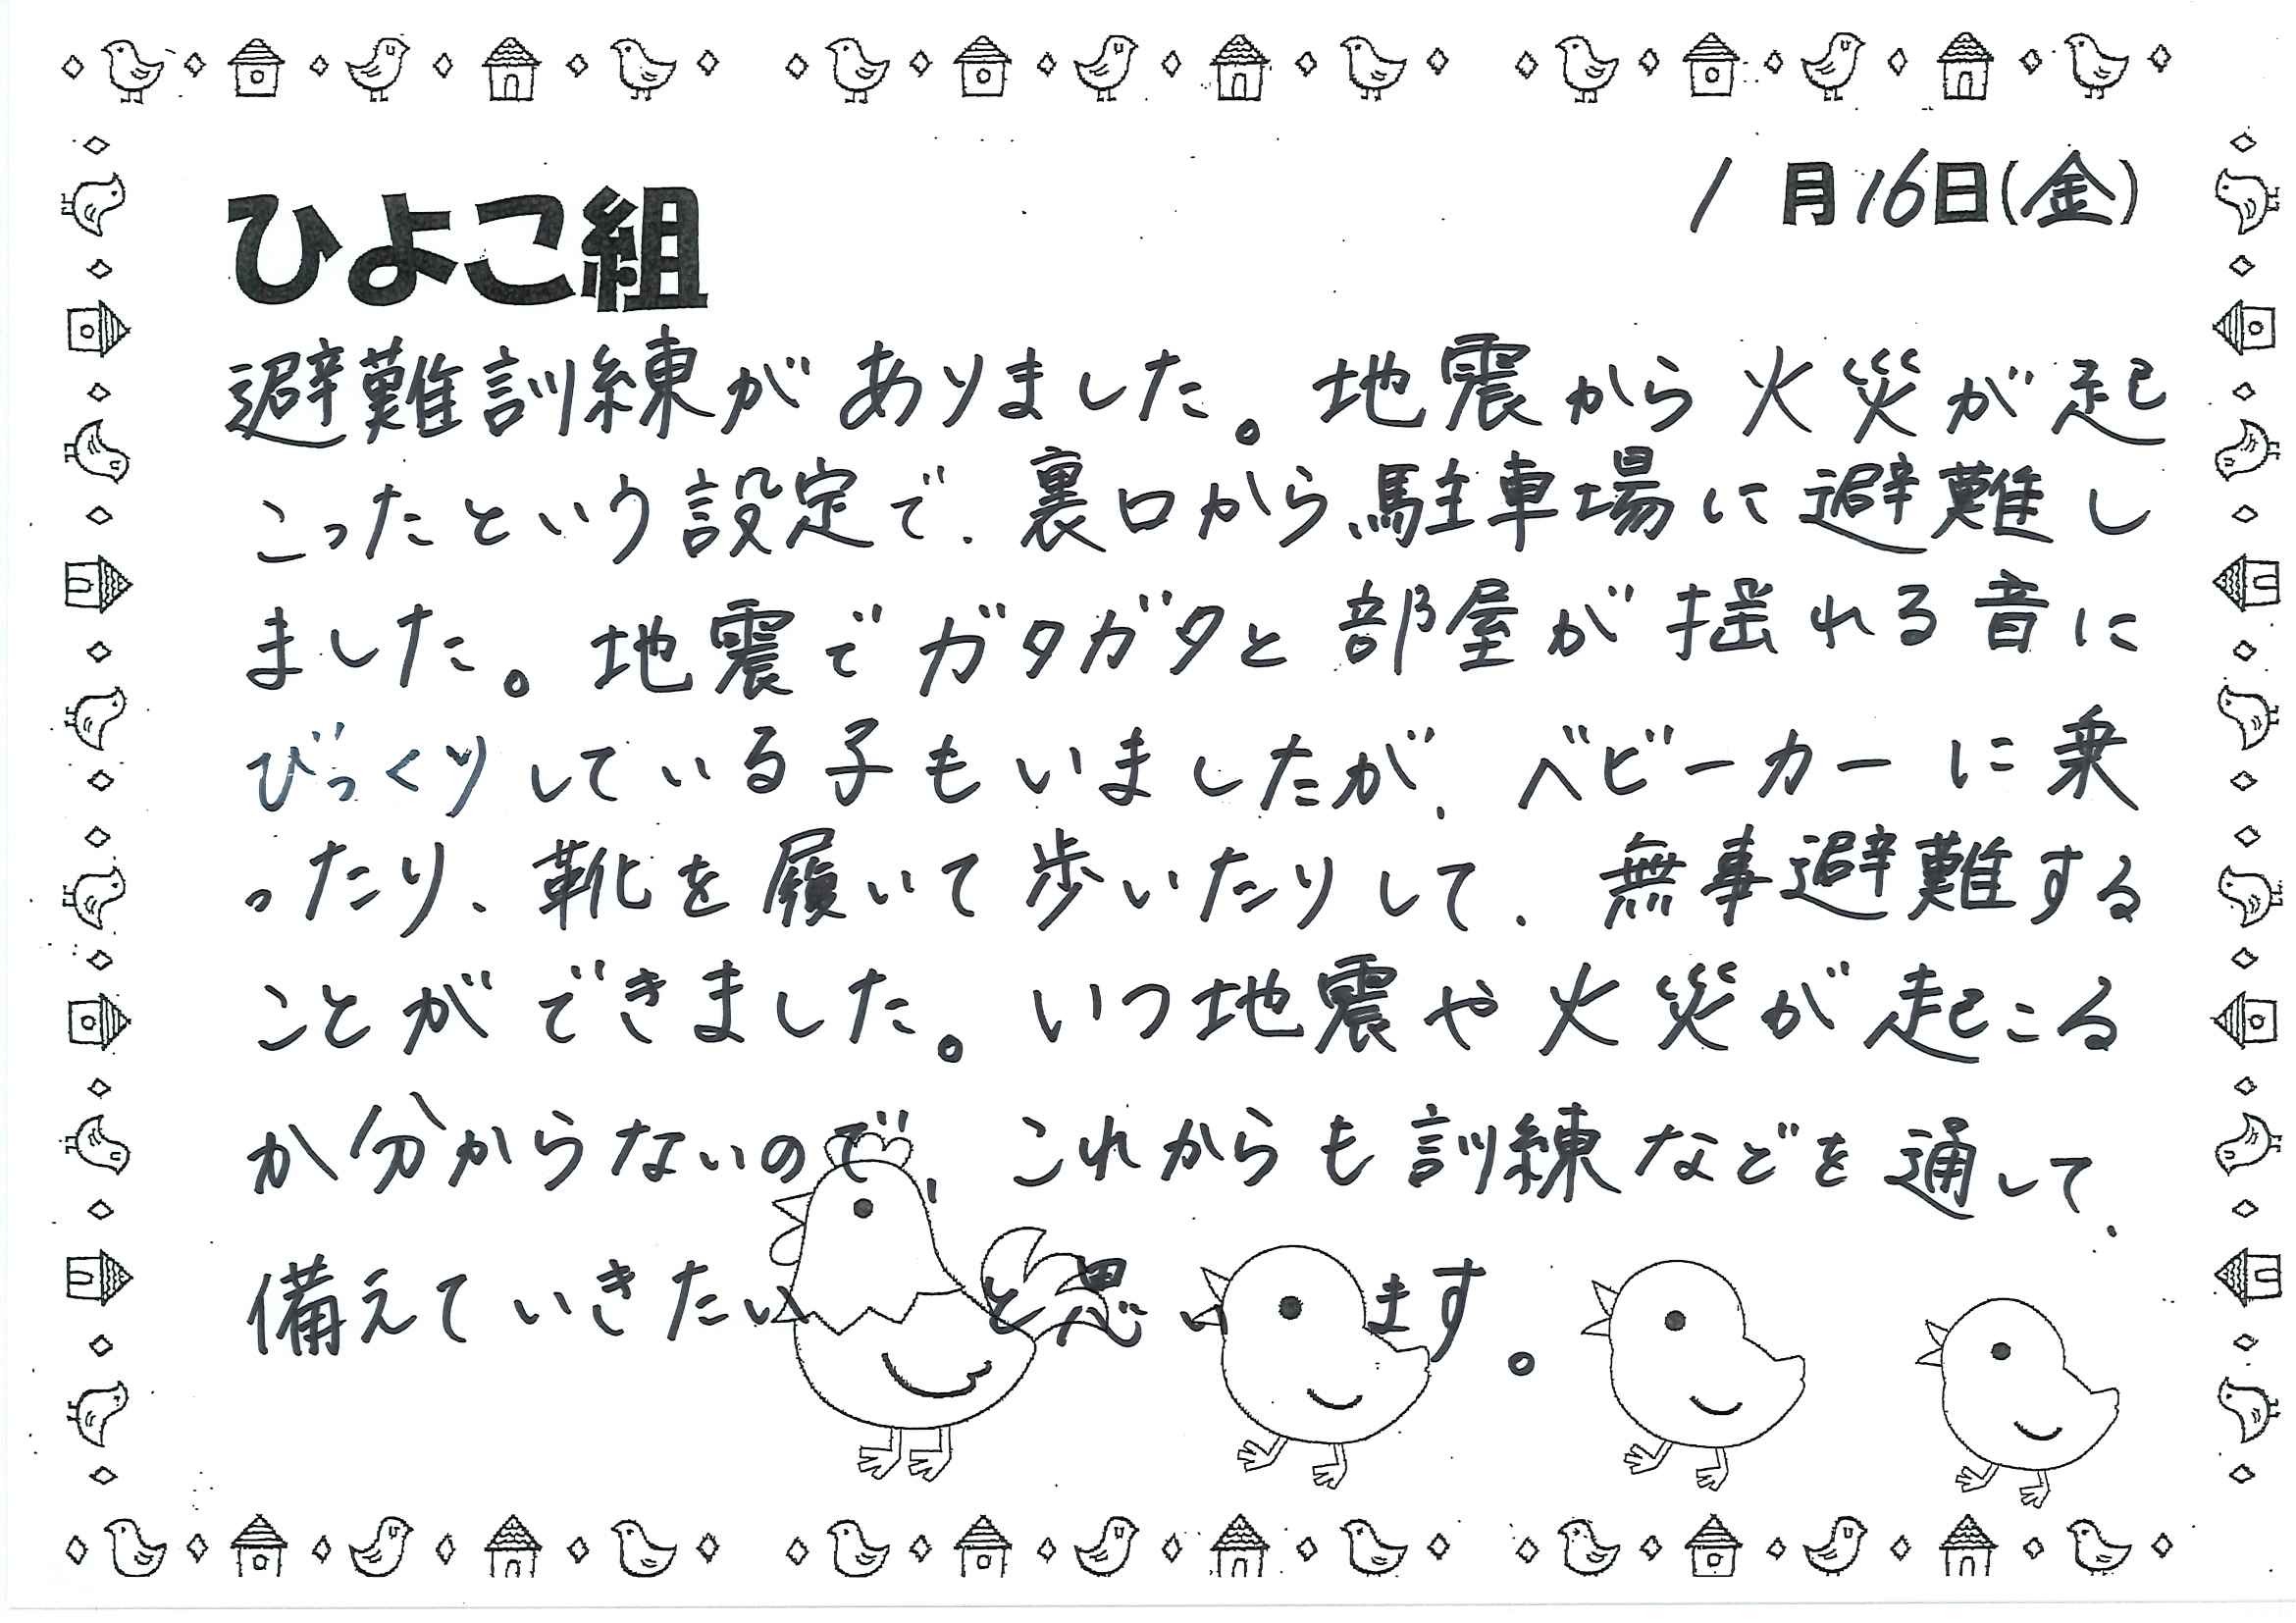 1月16日(金)
ひよこ組
避難訓練がありました。地震から火災が起
こったという設定で、裏口から駐車場に避難し
ました。地震でガタガタと部屋が揺れる音に
びっくりしている子もいましたが、ベビーカーに乗
ったり、靴を履いて歩いたりして、無事避難する
ことができました。いつ地震や火災が起こる
か分からないので、これからも訓練などを通して、
備えていきたいと思います。